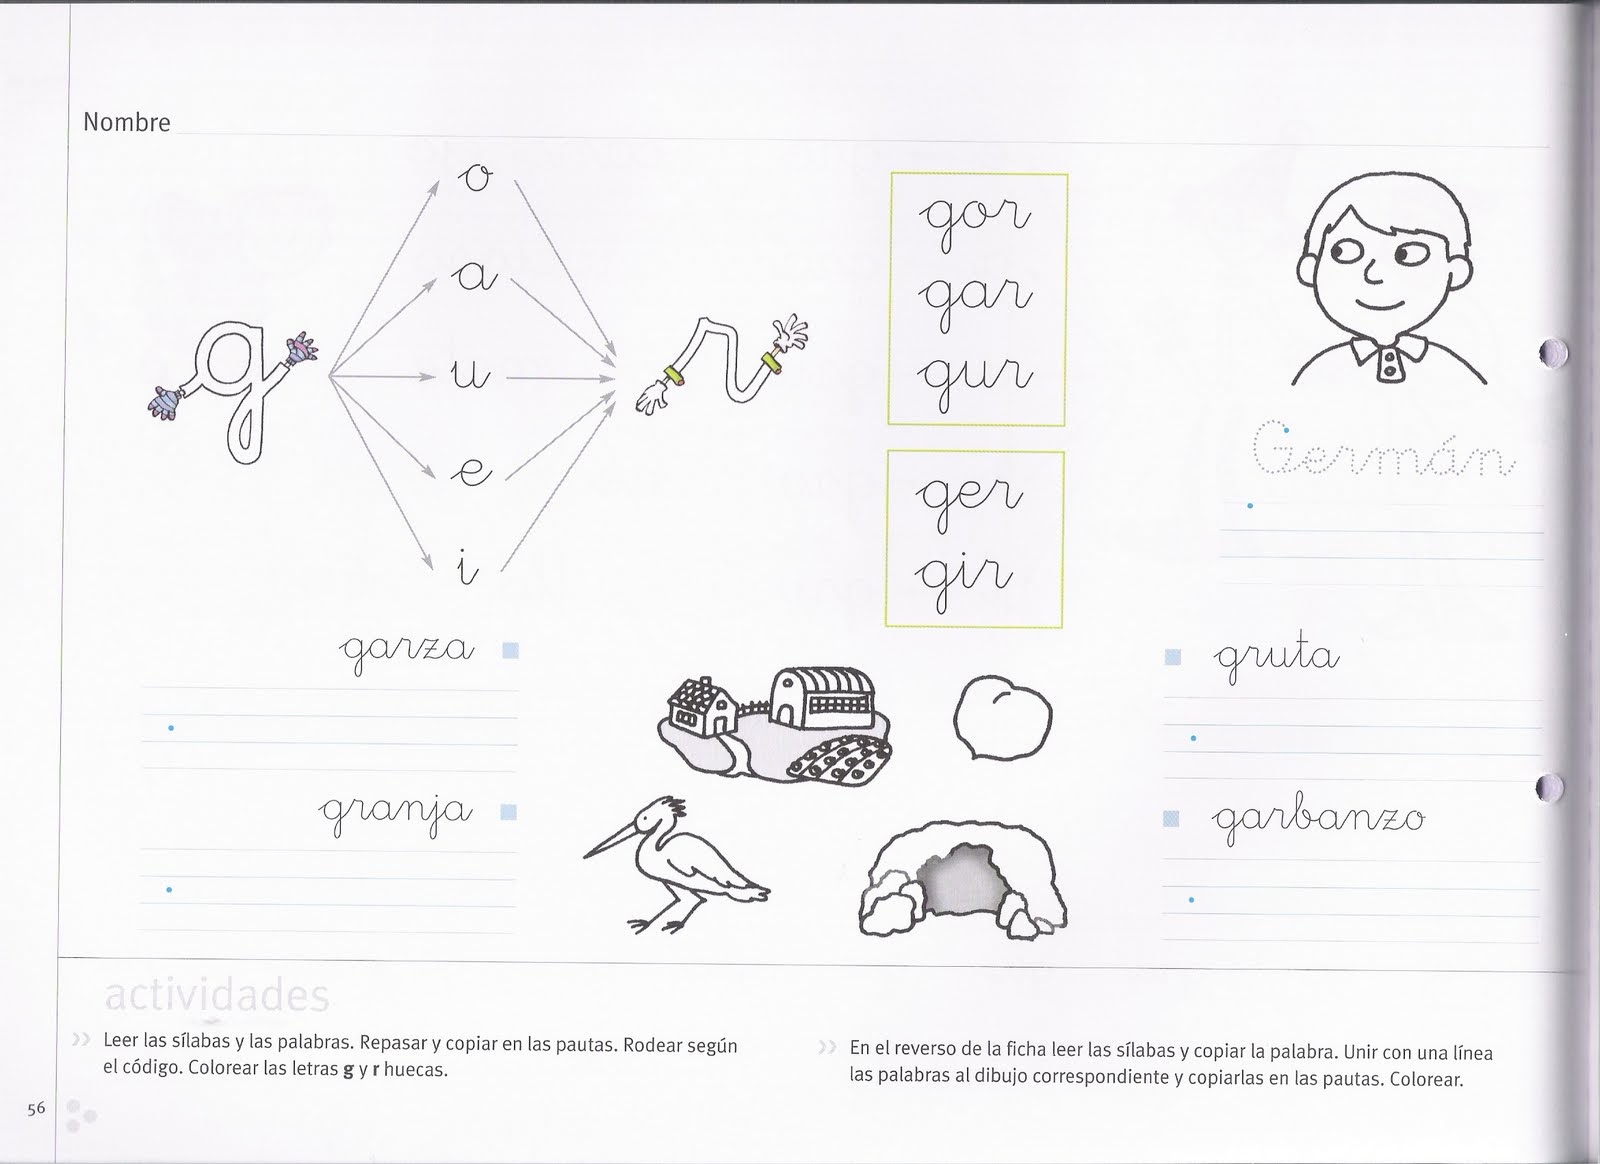 Nombre
o
a
u
e
i
g
r
gor
gar
gur
ger
gir
Germán
garza
granja
gruta
garbanzo
actividades
Leer las sílabas y las palabras. Repasar y copiar en las pautas. Rodear según
el código. Colorear las letras g y r huecas.
En el reverso de la ficha leer las sílabas y copiar la palabra. Unir con una línea
las palabras al dibujo correspondiente y copiarlas en las pautas. Colorear.
56